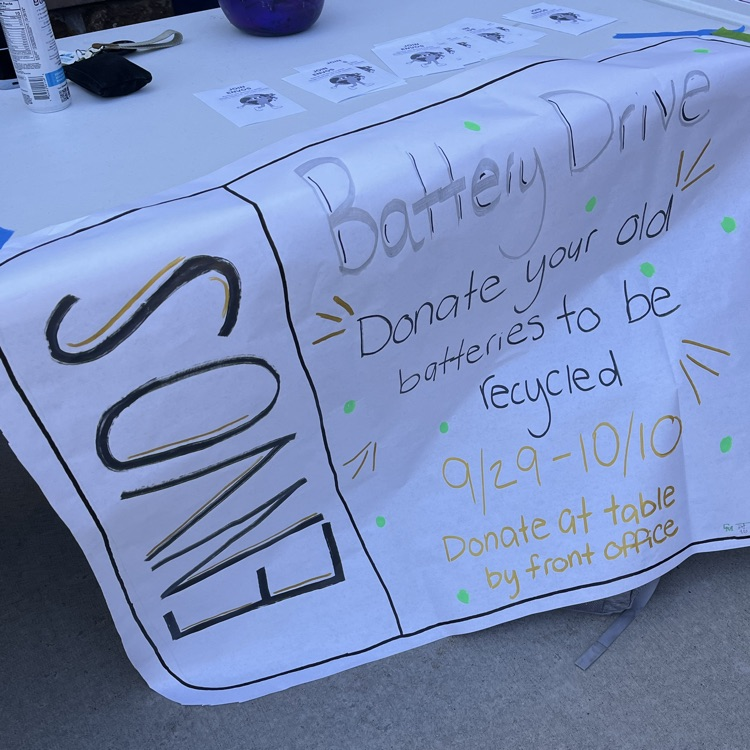 ENVOS
Battery Drive
Donate your old
batteries to be
recycled
9/29-10/10
Donate at table
by front office